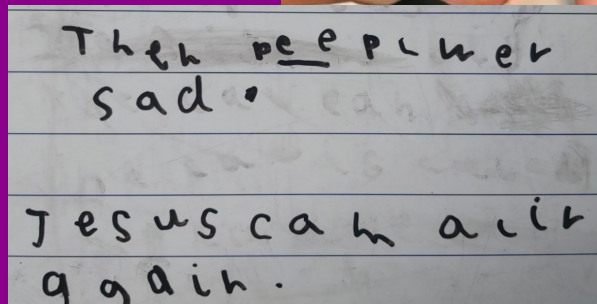 Then peepl wer
sad.
Jesus cam
again.